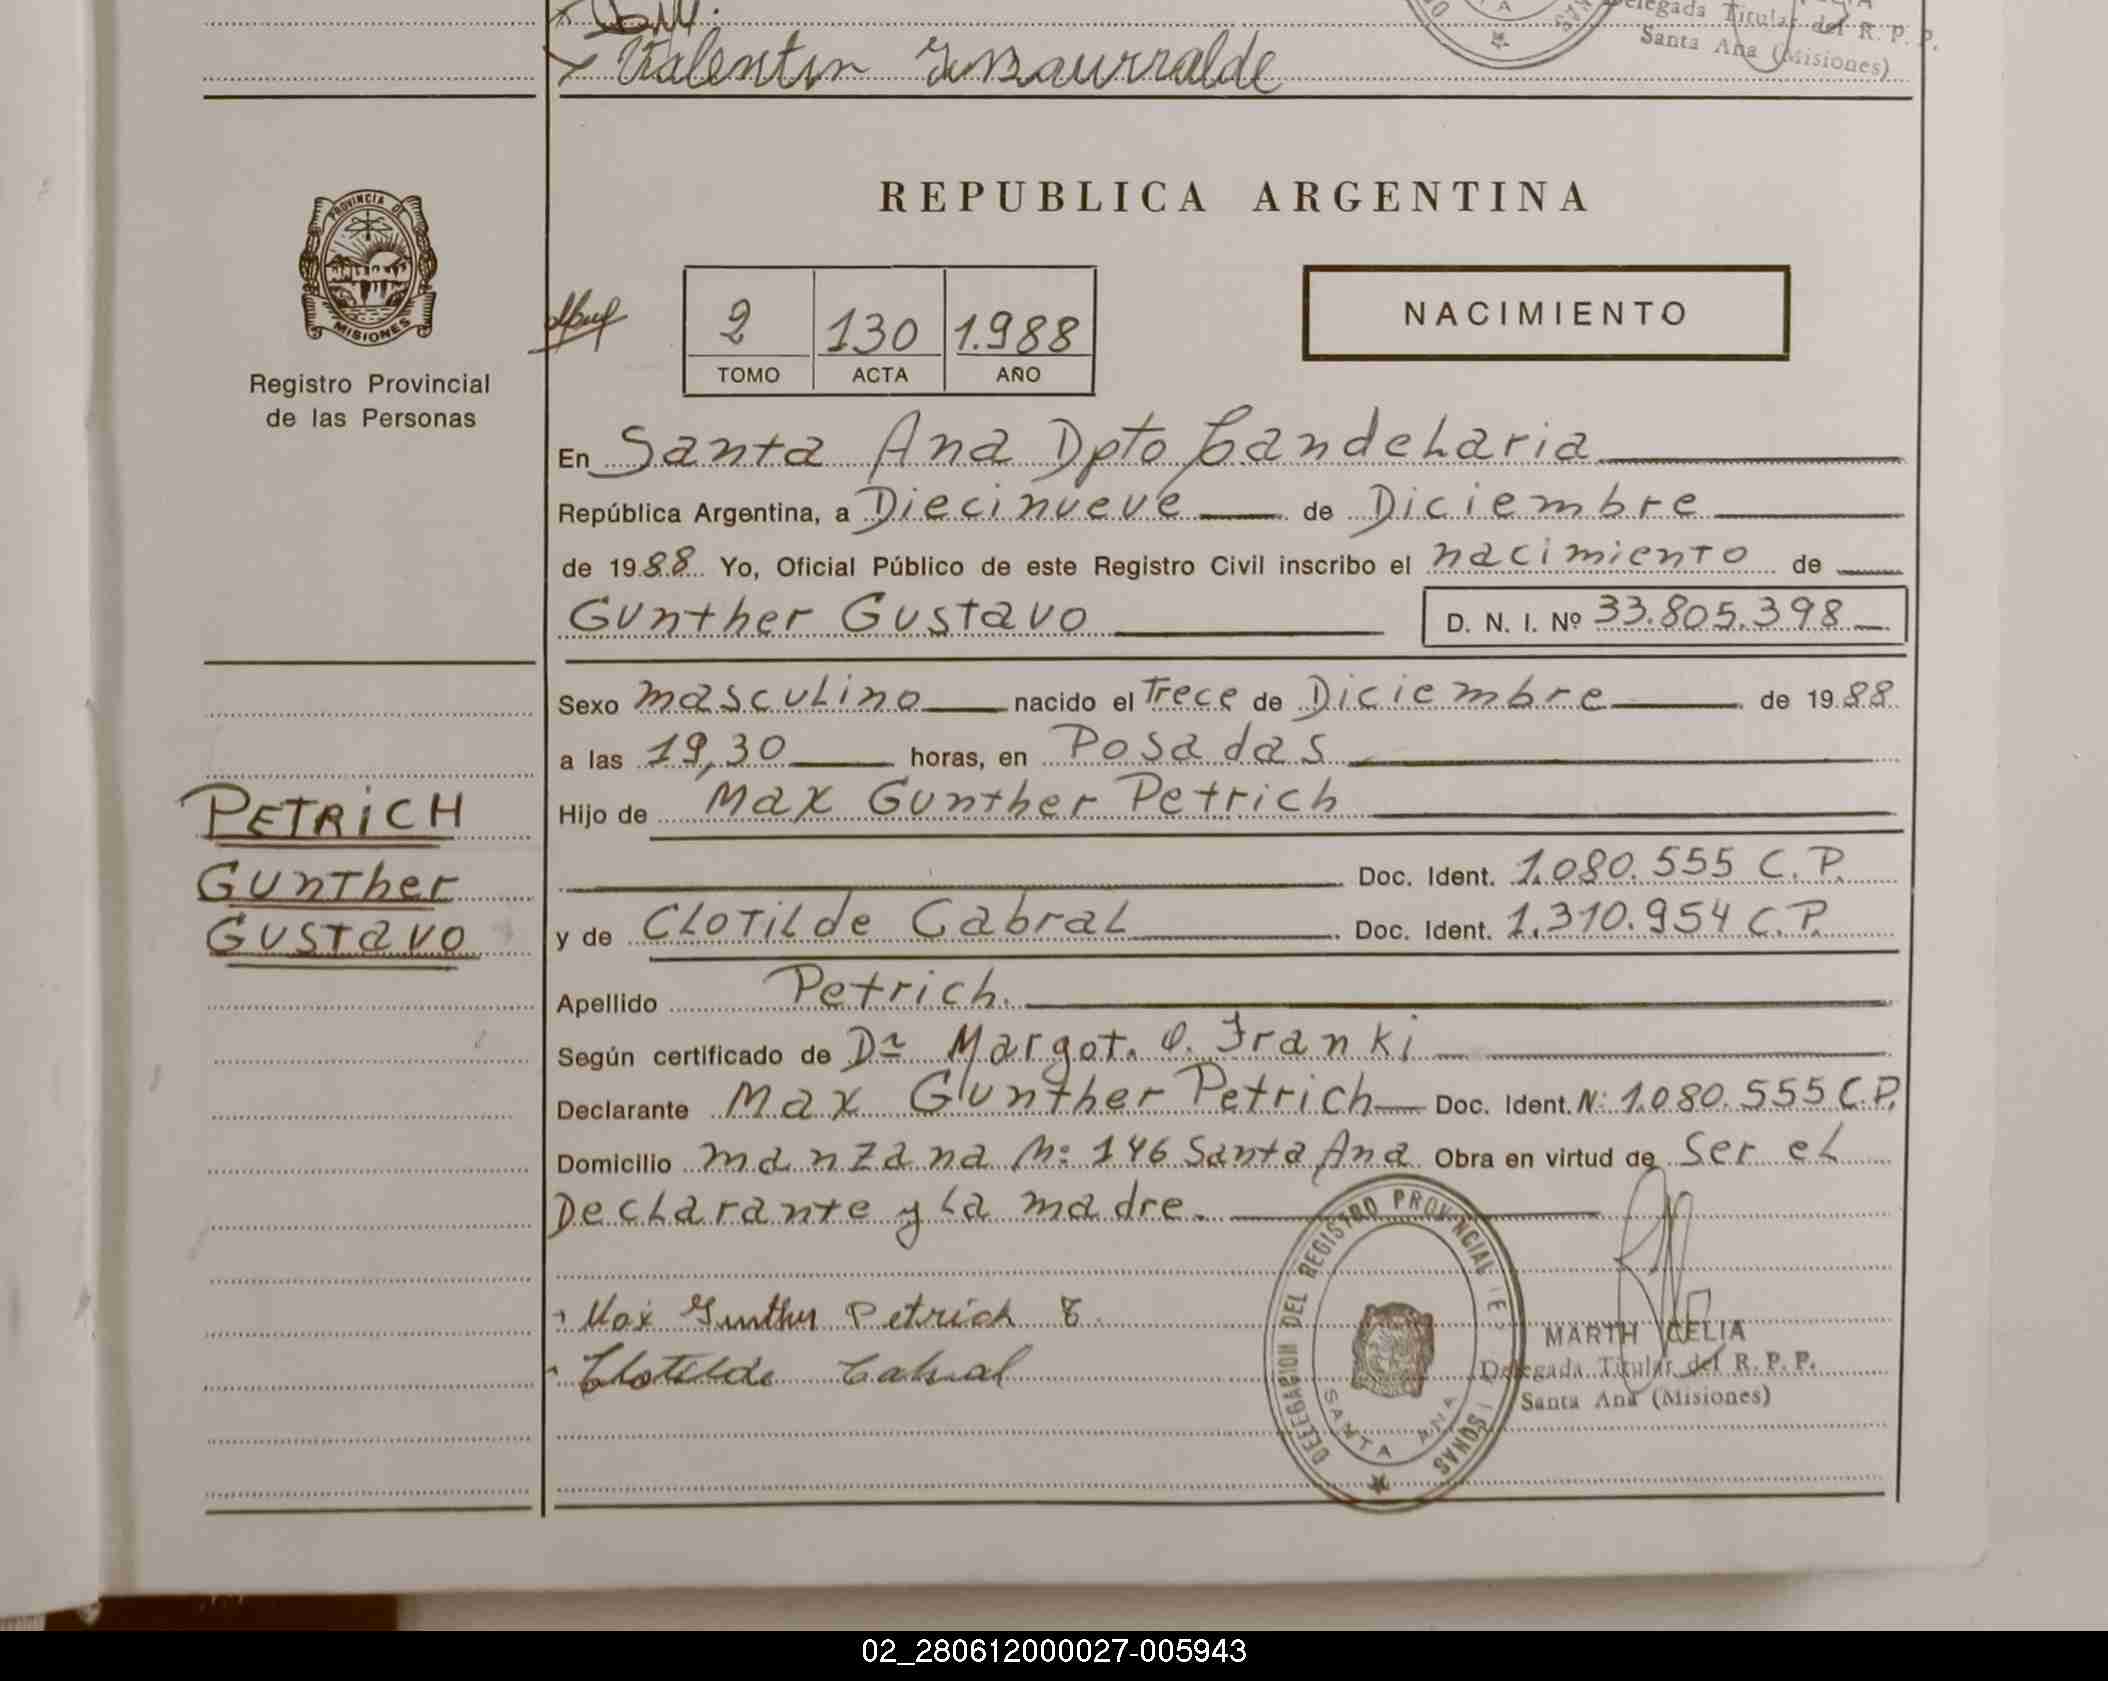 Valentin Insaurralde
Delegada Titular del R. P. P.
Santa Ana (Misiones)
PROVINCIA DE
MISIONES
Registro Provincial
de las Personas
REPUBLICA ARGENTINA
2 130 1.988
TOMO ACTA AÑO
NACIMIENTO
En Santa Ana Dpto Candelaria
República Argentina, a Diecinueve de Diciembre
de 1988 Yo, Oficial Público de este Registro Civil inscribo el nacimiento de
Gunther Gustavo D. N. I. Nº 33.805.398
Sexo masculino nacido el Trece de Diciembre de 1988
a las 19,30 horas, en Posadas
Hijo de Max Gunther Petrich
Doc. Ident. 1.080.555 C.P.
y de Clotilde Cabral Doc. Ident. 1.310.954 C.P.
Apellido Petrich.
Según certificado de Dra Margot. O. Franki
Declarante Max Gunther Petrich Doc. Ident. N: 1.080.555 C.P.
Domicilio manzana N: 146 Santa Ana Obra en virtud de Ser el
Declarante y La madre.
PETRICH
Gunther
Gustavo
Max Gunther Petrich
Clotilde Cabral
DELEGACION DEL REGISTRO PROVINCIAL
SANTA ANA
MARTH CELIA
Delegada Titular del R. P. P.
Santa Ana (Misiones)
02_280612000027-005943